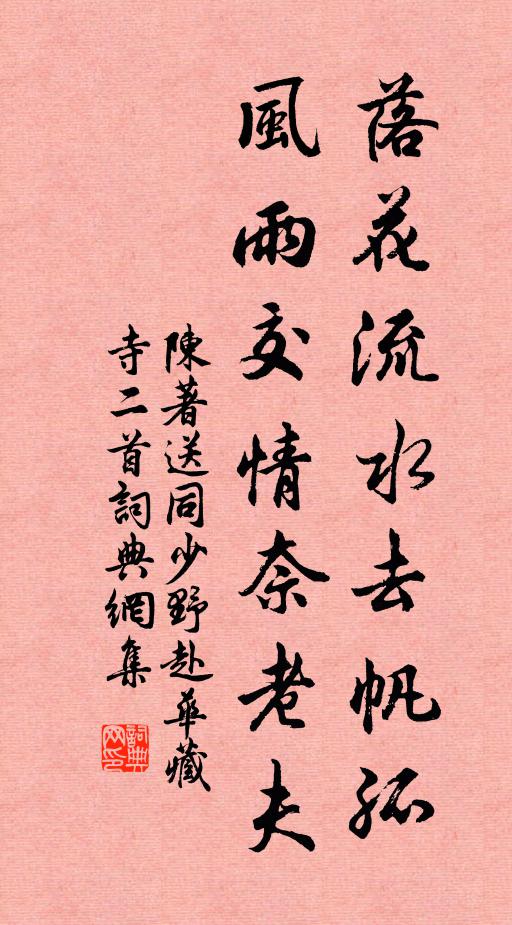 落花流水去帆孤
風雨交情奈老夫
陳著送同少野赴華藏
寺二首詞典網集
詞典网印